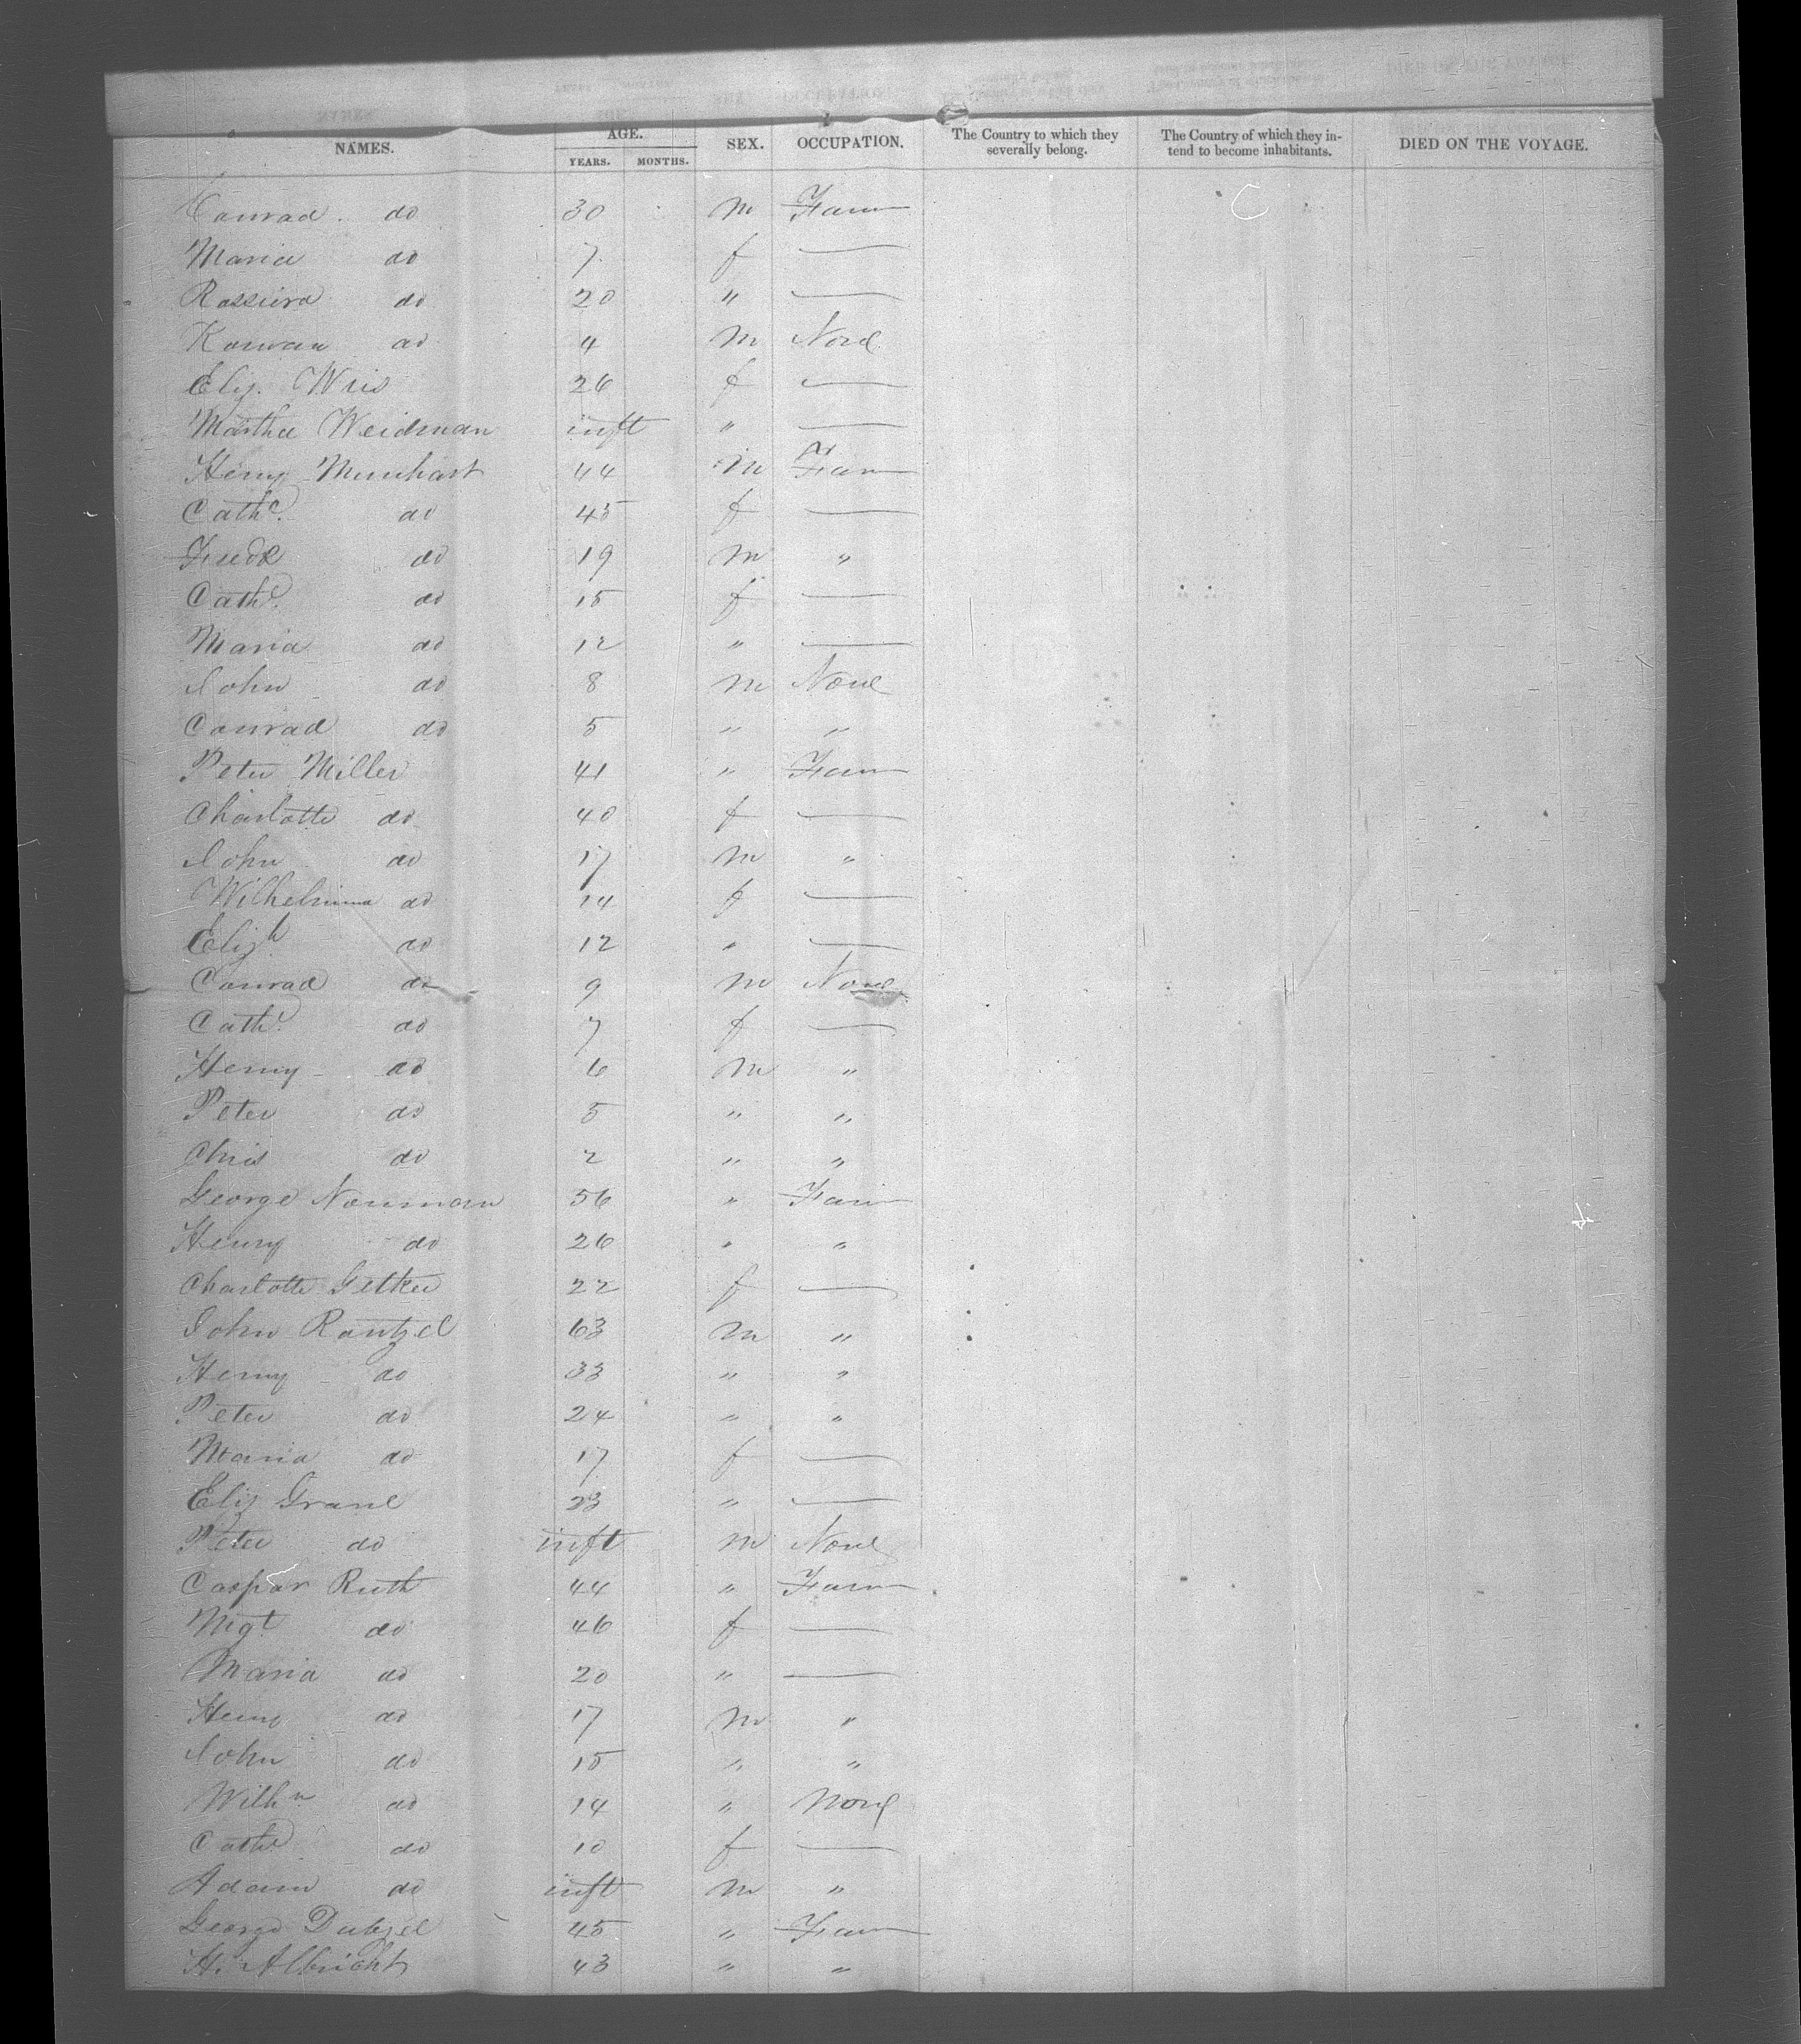 NAMES. AGE. SEX. OCCUPATION. The Country to which they severally belong. The Country of which they intend to become inhabitants. DIED ON THE VOYAGE.
YEARS. MONTHS.
Conrad do 30 m Farm
Maria do 7 f —
do 20 " —
do 4 m None
Eliz. 26 f —
Martha Weidman inft " —
Henry 44 m Farm
Cathe. do 45 f —
Fredk do 19 m "
Cathe. do 15 f —
Maria do 12 " —
John do 8 m None
Conrad do 5 " "
Peter Miller 41 " Farm
Charlotte do 40 f —
John do 17 m "
Wilhelmina do 14 f —
Elizh do 12 " —
Conrad do 9 m None
Cathe. do 7 f —
Henry do 6 m "
Peter do 5 " "
Chris do 2 " "
George Nauman 56 " Farm
Henry do 26 " "
Charlotte Getker 22 f —
John Rantzel 63 m "
Henry do 33 " "
Peter do 24 " "
Maria do 17 f —
Eliz Grane 23 " —
Peter do inft m None
Caspar Ruth 44 " Farm
Mgt do 46 f —
Maria do 20 " —
Henry do 17 m "
John do 15 " "
Wilhm do 14 " None
Cathe do 10 f —
Adam do inft m "
George Dubzel 45 " Farm
H. Albricht 43 " "